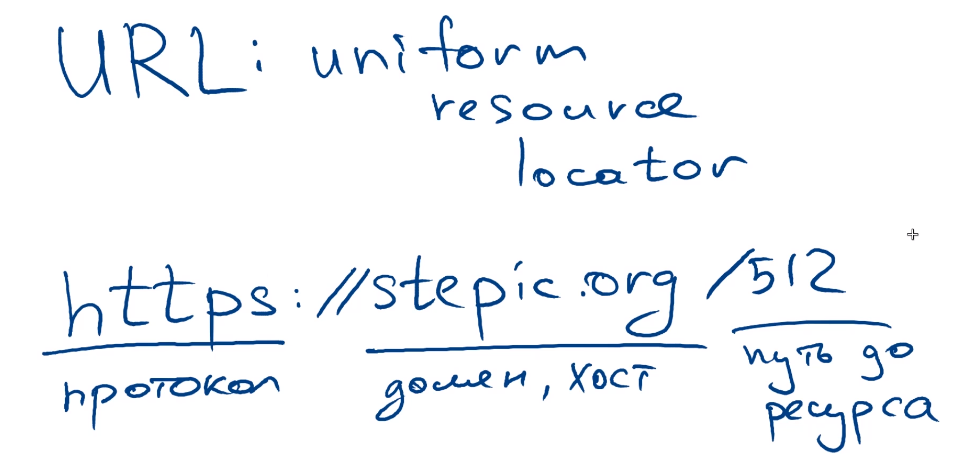 URL: uniform
resource
locator
https://stepic.org/512
протокол домен, хост путь до
ресурса